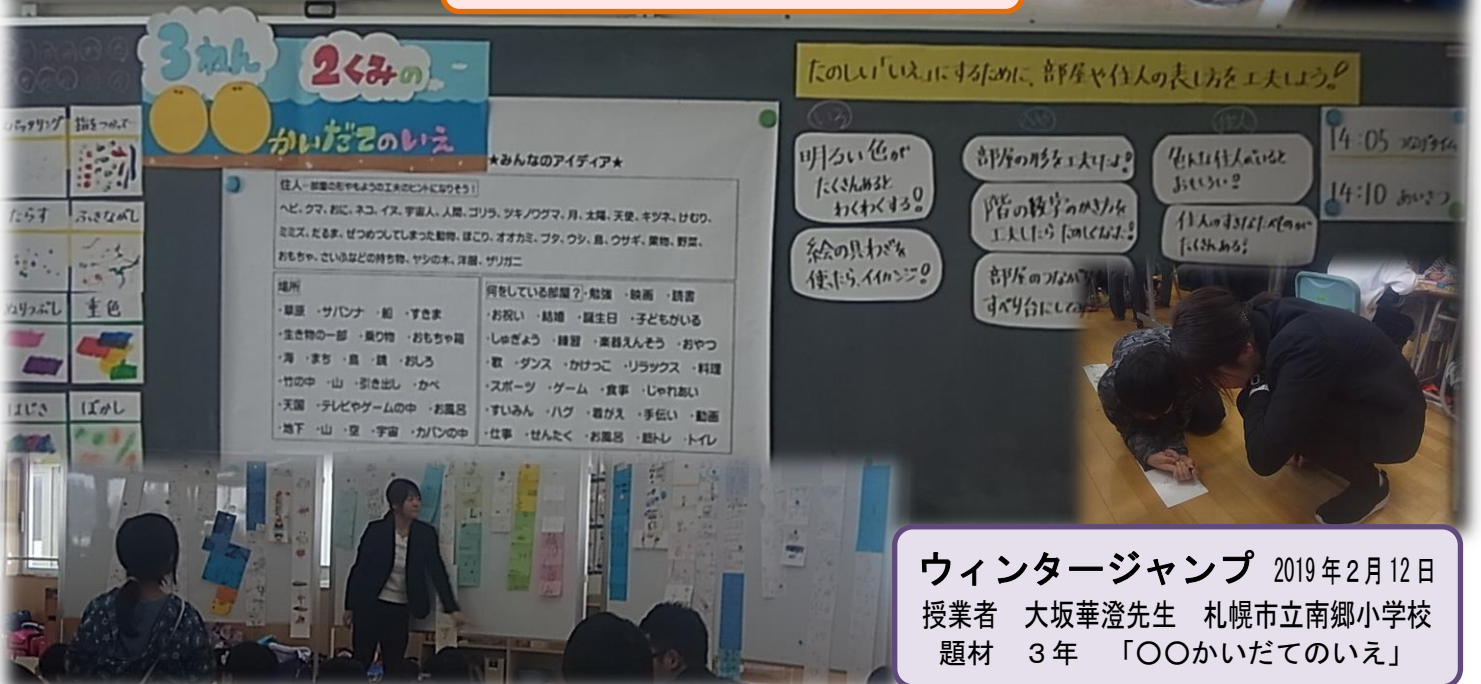 3ねん
2くみの
かいだてのいえ
たのしい「いえ」にするために、部屋や住人の表し方を工夫しよう!
指をつかって
たらす
ふきながし
ぬりつぶし
重色
はじき
ぼかし
★みんなのアイディア★
住人…部屋の形やもようの工夫のヒントになりそう!
ヘビ、クマ、おに、ネコ、イヌ、宇宙人、人間、ゴリラ、ツキノワグマ、月、太陽、天使、キツネ、けむり、
ミミズ、だるま、ぜつめつしてしまった動物、ほこり、オオカミ、ブタ、ウシ、鳥、ウサギ、果物、野菜、
おもちゃ、さいふなどの持ち物、ヤシの木、洋服、ザリガニ
場所
・草原 ・サバンナ ・船 ・すきま
・生き物の一部 ・乗り物 ・おもちゃ箱
・海 ・まち ・島 ・鏡 ・おしろ
・竹の中 ・山 ・引き出し ・かべ
・天国 ・テレビやゲームの中 ・お風呂
・地下 ・山 ・空 ・宇宙 ・カバンの中
何をしている部屋?・勉強 ・映画 ・読書
・お祝い ・結婚 ・誕生日 ・子どもがいる
・しゅぎょう ・練習 ・楽器えんそう ・おやつ
・歌 ・ダンス ・かけっこ ・リラックス ・料理
・スポーツ ・ゲーム ・食事 ・じゃれあい
・すいみん ・ハグ ・着がえ ・手伝い ・動画
・仕事 ・せんたく ・お風呂 ・筋トレ ・トイレ
いろ
明るい色が
たくさんあると
わくわくする!
絵の具わざを
使ったら、イイカンジ!
部屋の形を工夫したよ!
階の数字のかき方を
工夫したら たのしくなった!
部屋のつながり
すべり台にして
住人
色んな住人がいると
おもしろい!
住人のすきなたべものが
たくさんある!
14:05
14:10 あいさつ
ウィンタージャンプ 2019年2月12日
授業者 大坂華澄先生 札幌市立南郷小学校
題材 3年 「〇〇かいだてのいえ」